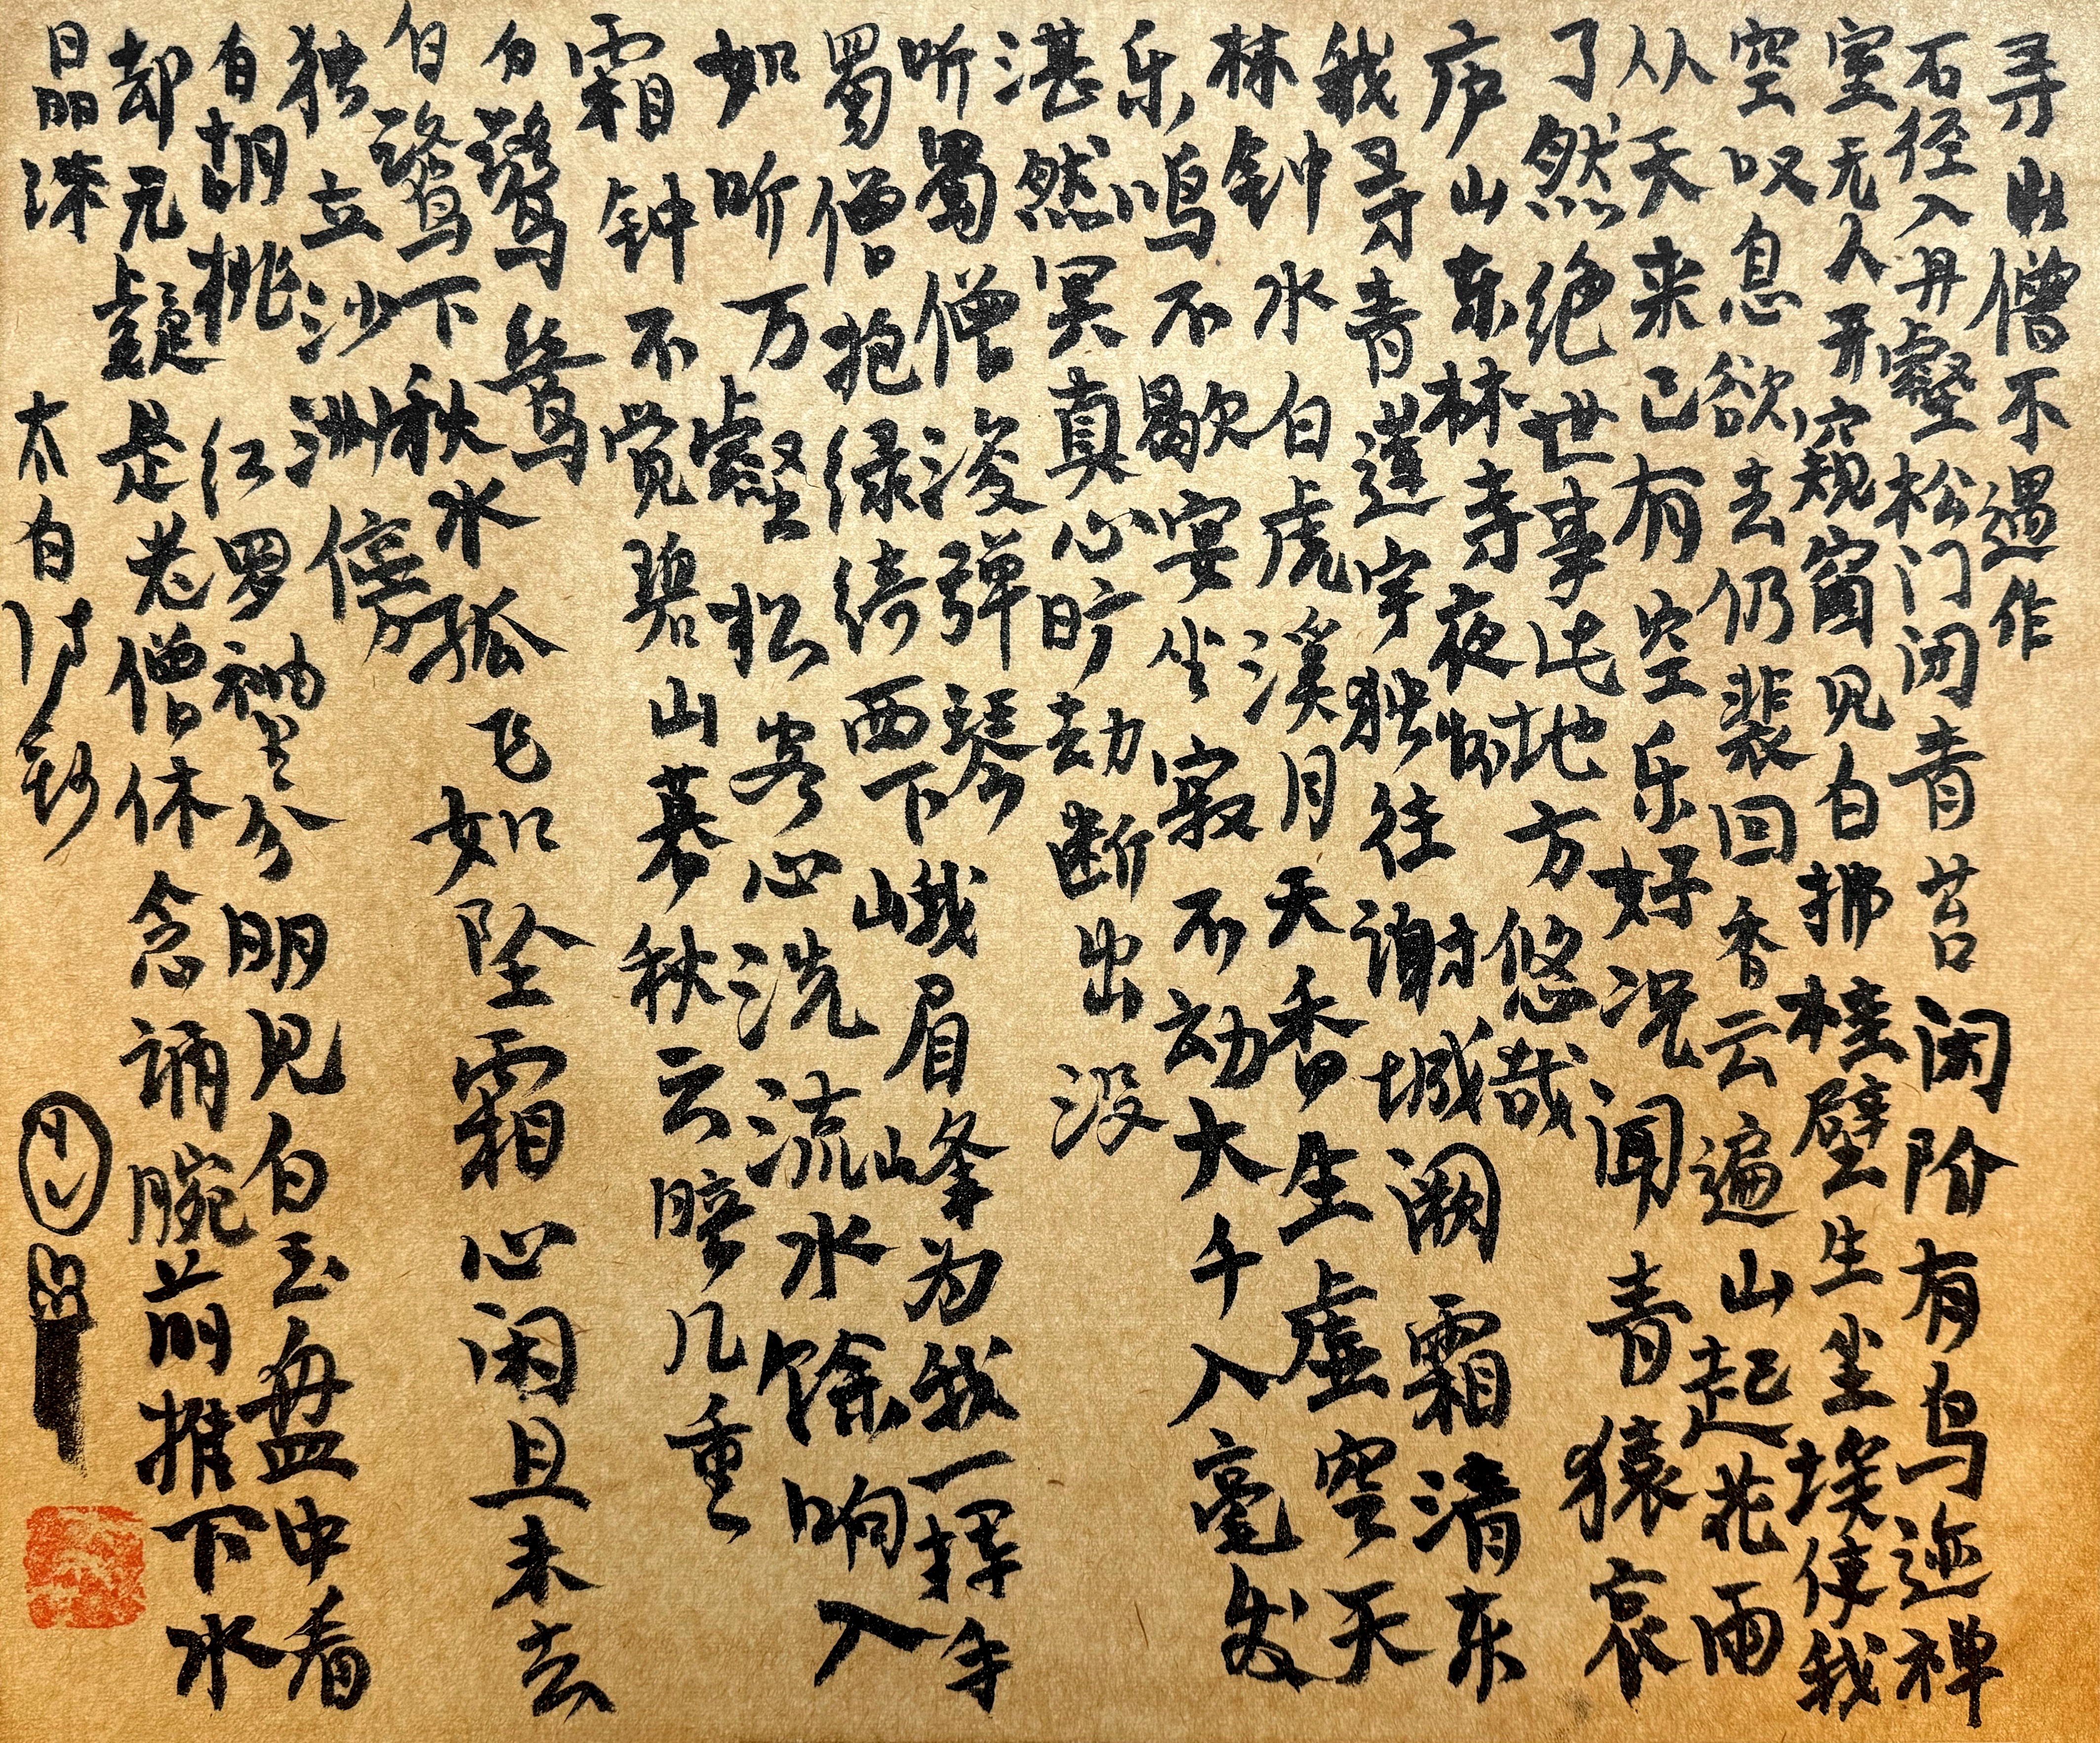 寻山僧不遇作
石径入丹壑松门闭青苔闲阶有鸟迹禅
室无人开窥窗见白拂挂壁生尘埃使我
空叹息欲去仍裴回香云遍山起花雨
从天来已有空乐好况闻青猿哀
了然绝世事此地方悠哉
庐山东林寺夜怀
我寻青莲宇独往谢城阙霜清东
林钟水白虎溪月天香生虚空天
乐鸣不歇宴坐寂不动大千入毫发
湛然冥真心旷劫断出没
听蜀僧浚弹琴
蜀僧抱绿绮西下峨眉峰为我一挥手
如听万壑松客心洗流水馀响入
霜钟不觉碧山暮秋云暗几重
白鹭鸶
白鹭下秋水孤飞如坠霜心闲且未去
独立沙洲傍
白胡桃
红罗袖里分明见白玉盘中看
却无疑是老僧休念诵腕前推下水
晶深
太白诗钞